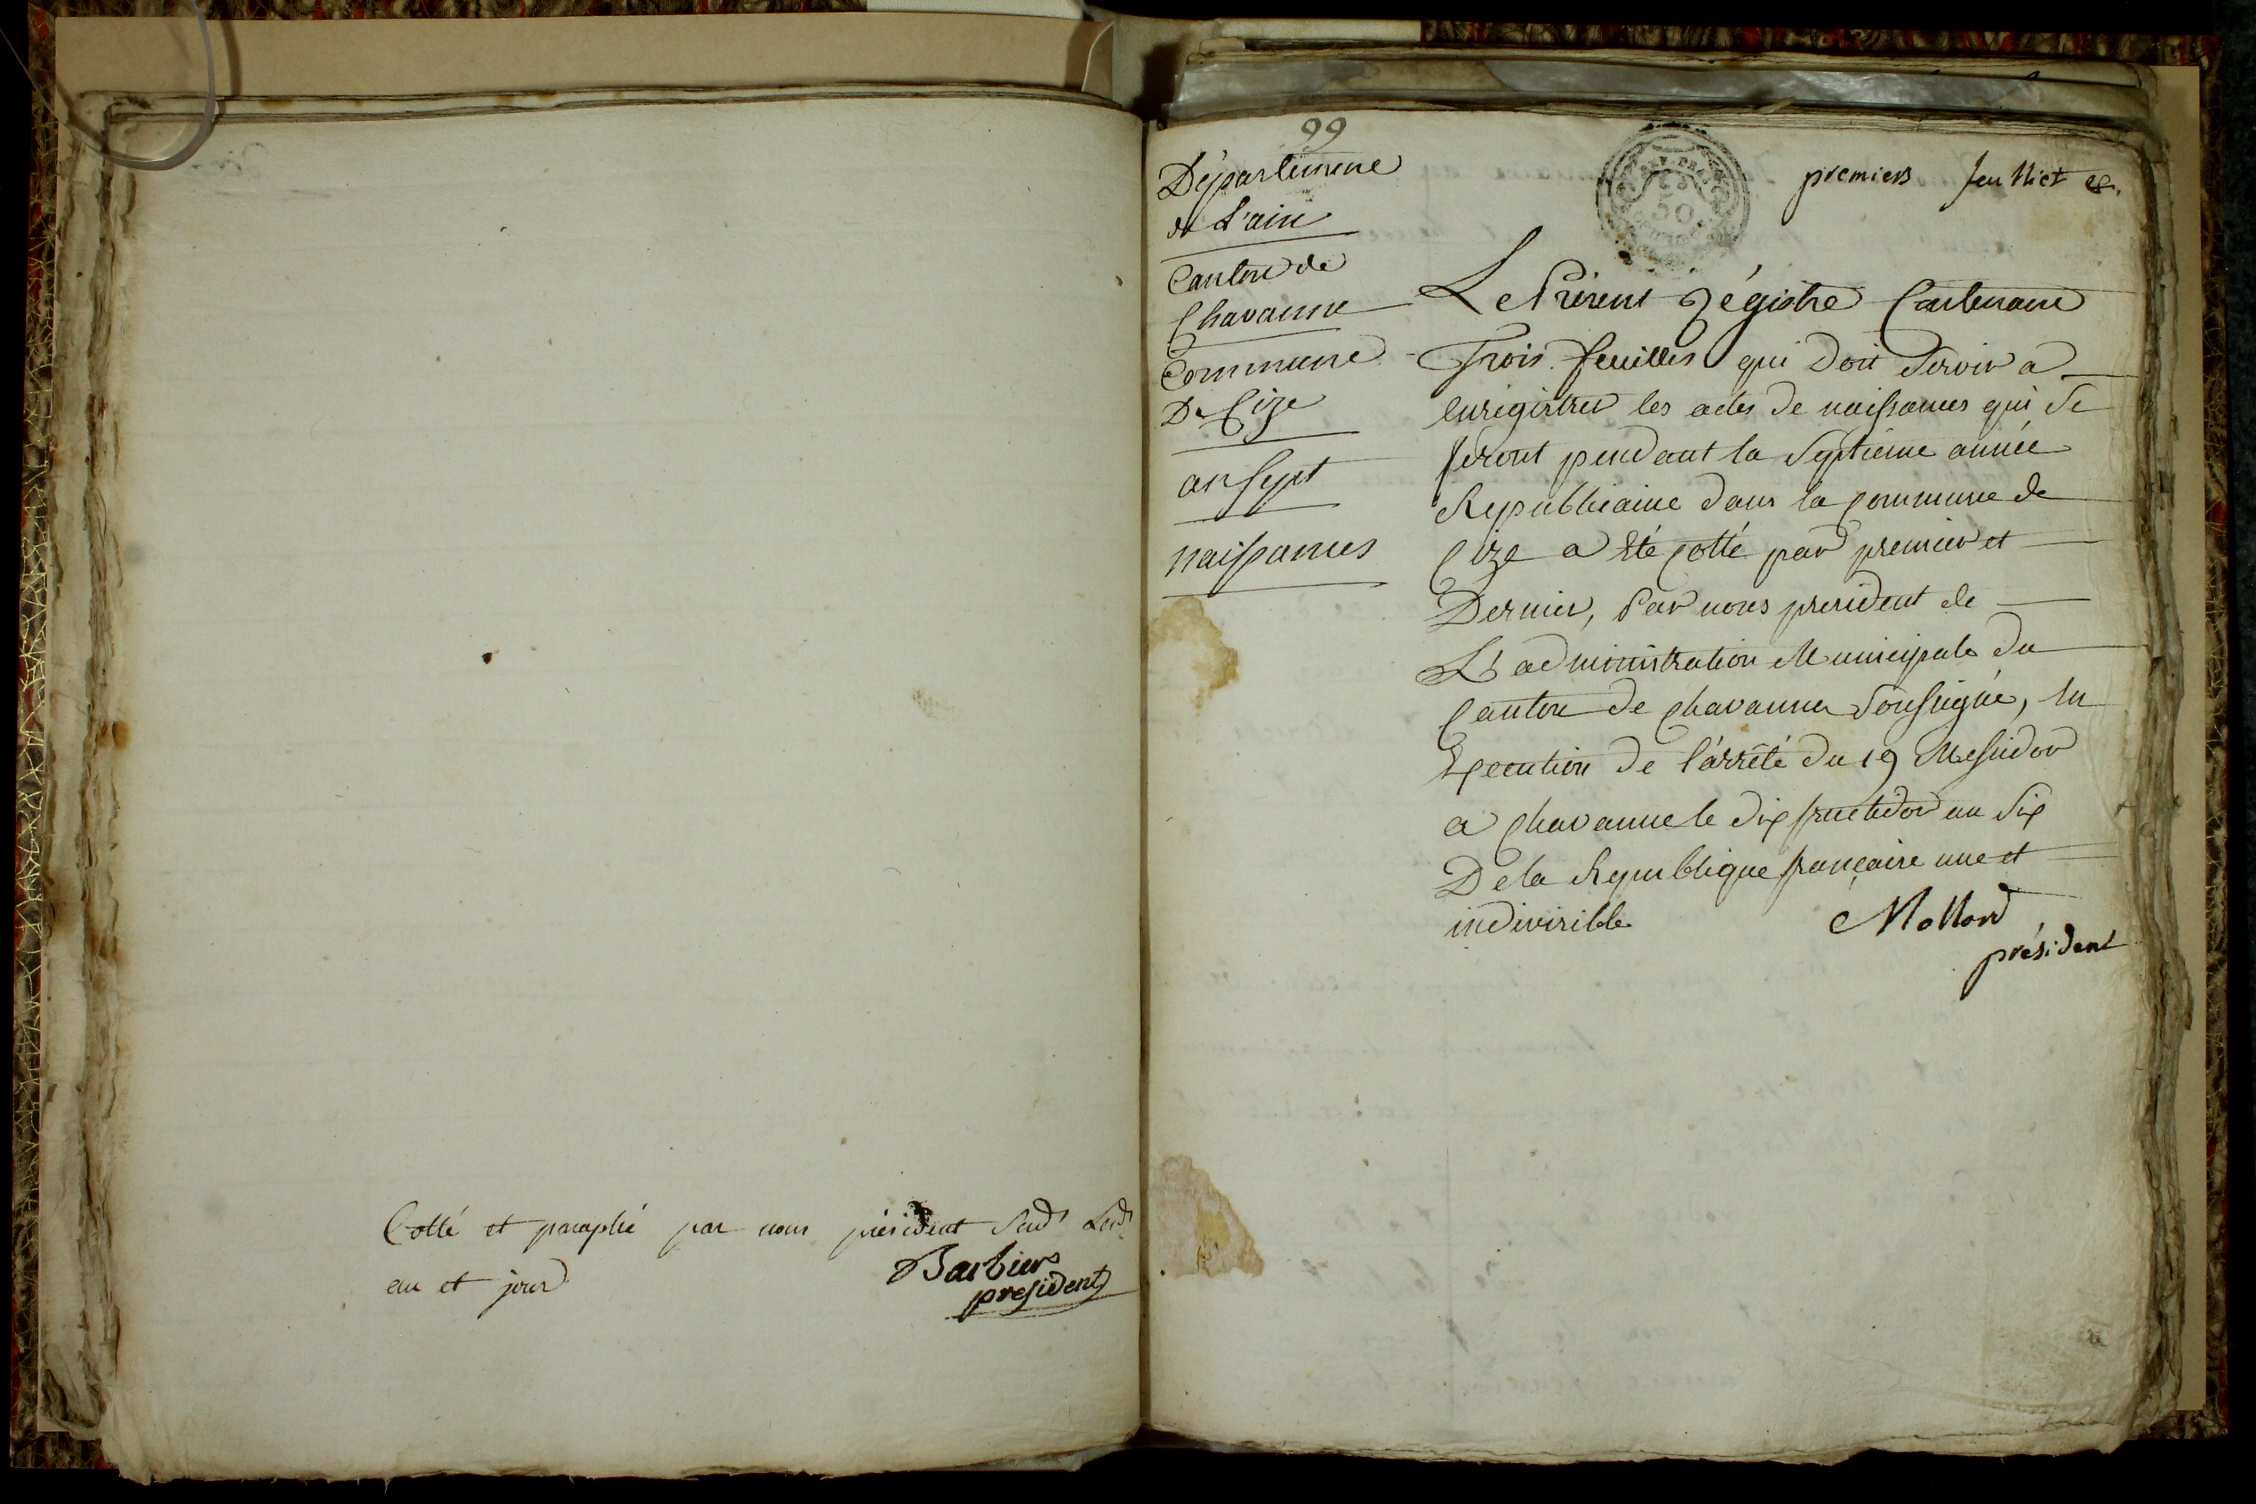 Cotté et paraphé par nous président Sud.t Lesd.
an et jour
Barbier
president
99
Département
de L'ain
Canton de
Chavanne
Commune
De Cize
an sept
naissances
50
premiers feulliet
Le Présent Régistre Contenant
Trois feuilles qui Doit Servir a
Enrégistrer les actes de naissances qui se
feront pendant la Septieme année
Republicaine dans la Commune de
Cize a Eté Cotté par premier et
Dernier, Par nous president de
L'administration Municipale du
Canton de Chavanne Soussigné, En
Execution de l'árrêté du 19 Messidor
a Chavanne le dix fructidor an Six
De la Republique française une et
indivisible
Mollard
président